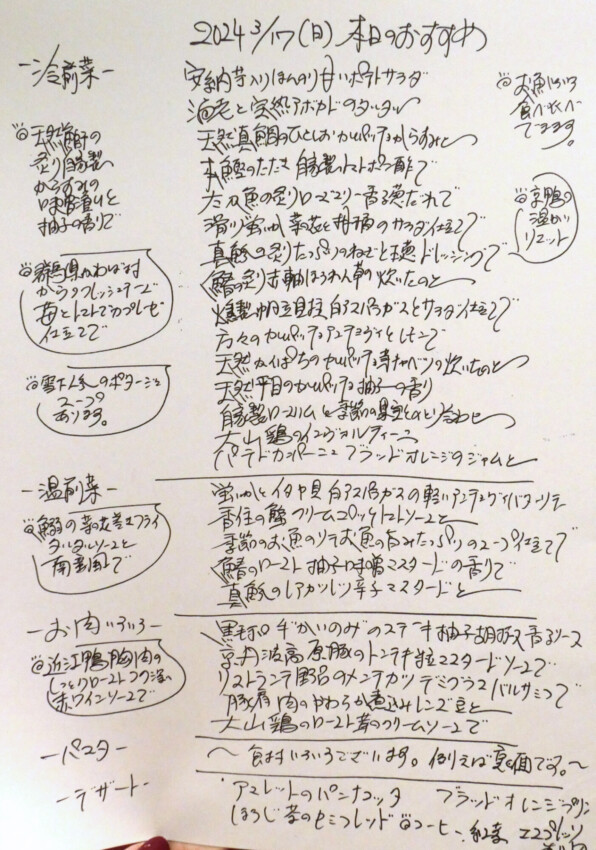 2024 3/17(日) 本日のおすすめ
-冷前菜-
安納芋入りほんのり甘いポテトサラダ
海老と完熟アボカドのタルタル
天然真鯛のひとしおカルパッチョからすみと
本鰹のたたき 自家製トマトポン酢で
太刀魚の炙りローズマリー香る焦がれで
滑川蛍いか 菜の花と柑橘のサラダ仕立て
真鯵の炙りたっぷりのねぎと ドレッシングで
鰆の炙り赤軸ほうれん草の炊いたのと
燻製帆立貝柱 白アスパラガスとサラダ仕立で
方々のカルパッチョ アンチョヴィとレモンで
天然かんぱちのカルパッチョ キャベツの炊いたのと
天然平目のカルパッチョ 柚子の香り
自家製ロースハムと季節の果実とひとり合わせ
大山鶏のインヴォルティーニ
パテドカンパーニュ ブラッドオレンジのジャムと
天然鰤の
炙り自家製
からすみの
味醤油と
柚子の香りで
かわば村
からのフレッシュチーズ
苺とトマトでカプレーゼ
仕立てで
雪下人参のポタージュ
スープ
あります。
お魚いろいろ
食べ比べ
できます。
京鴨の
温かい
リエット
-温前菜-
蛍いかとイタヤ貝 白アスパラガスの軽いアンチョヴィバターソテー
香住の蟹クリームコロッケトマトソースと
季節のお魚のソテーお魚の旨みたっぷりのスープ仕立てで
鰆のロースト 柚子味噌マスタードの香りで
真鯵のレアカツレツ 辛子マスタードと
鰯の菜の花巻きフライ
タルタルソースと
南蛮風で
-お肉いろいろ-
黒毛和牛“かいのみ”のステーキ 柚子胡椒香るソース
京丹波高原豚のトンテキ 粒マスタードソースで
リストランテ野呂のメンチカツ デミグラスバルサミコで
豚肩肉のやわらか煮込み レンズ豆と
大山鶏のロースト 茸のクリームソースで
近江鴨胸肉の
しっとりロースト コク深い
赤ワインソースで
-パスタ-
～ 食材いろいろでございます。例えば裏面です。～
-デザート-
アマレットのパンナコッタ ブラッドオレンジプリン
ほうじ茶のセミフレッド コーヒー、紅茶 エスプレッソ